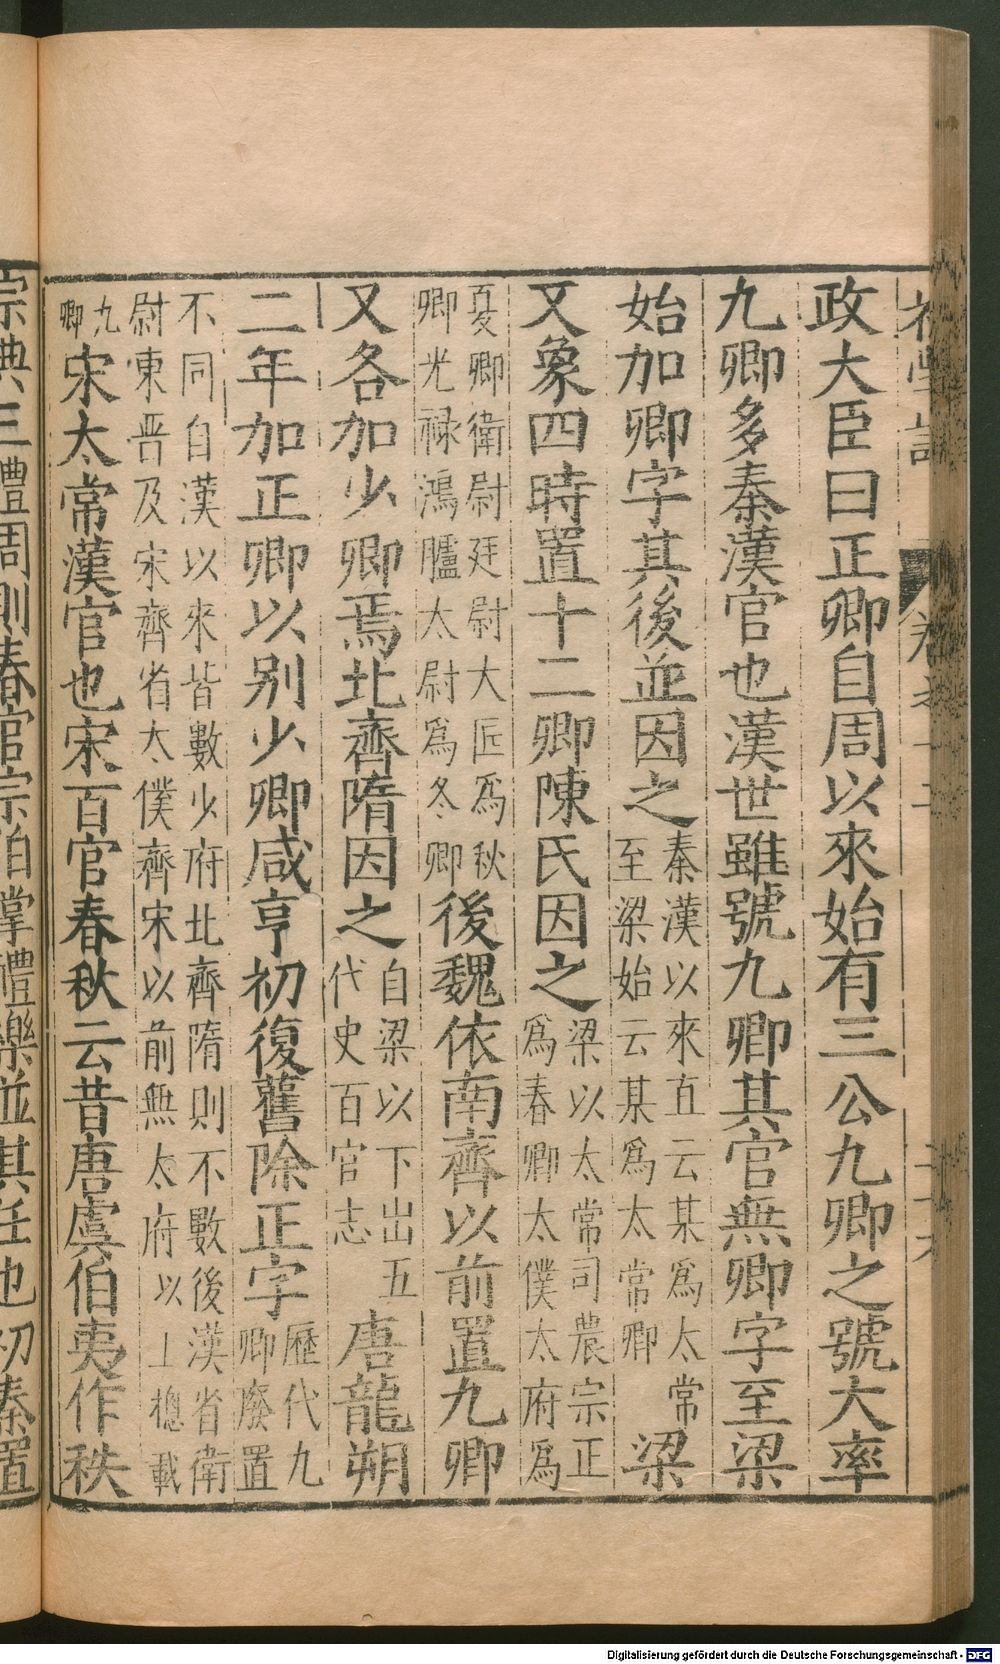 政大臣曰正卿自周以來始有三公九卿之號大率
九卿多秦漢官也漢世雖號九卿其官無卿字至梁
始加卿字其後並因之秦漢以來直云某為太常至梁始云某為太常卿梁
又象四時置十二卿陳氏因之梁以太常司農宗正為春卿太僕太府為
夏卿衛尉廷尉大匠為秋卿光祿鴻臚太尉為冬卿後魏依南齊以前置九卿
又各加少卿焉北齊隋因之自梁以下出五代史百官志唐龍朔
二年加正卿以別少卿咸亨初復舊除正字歷代九卿廢置
不同自漢以來皆數少府北齊隋則不數後漢省衛尉東晉及宋齊省太僕齊宋以前無太府以上揔載
九卿宋太常漢官也宋百官春秋云昔唐虞伯夷作秩
宗典三禮周則春官宗伯掌禮樂並其任也初秦置
Digitalisierung gefördert durch die Deutsche Forschungsgemeinschaft - DFG